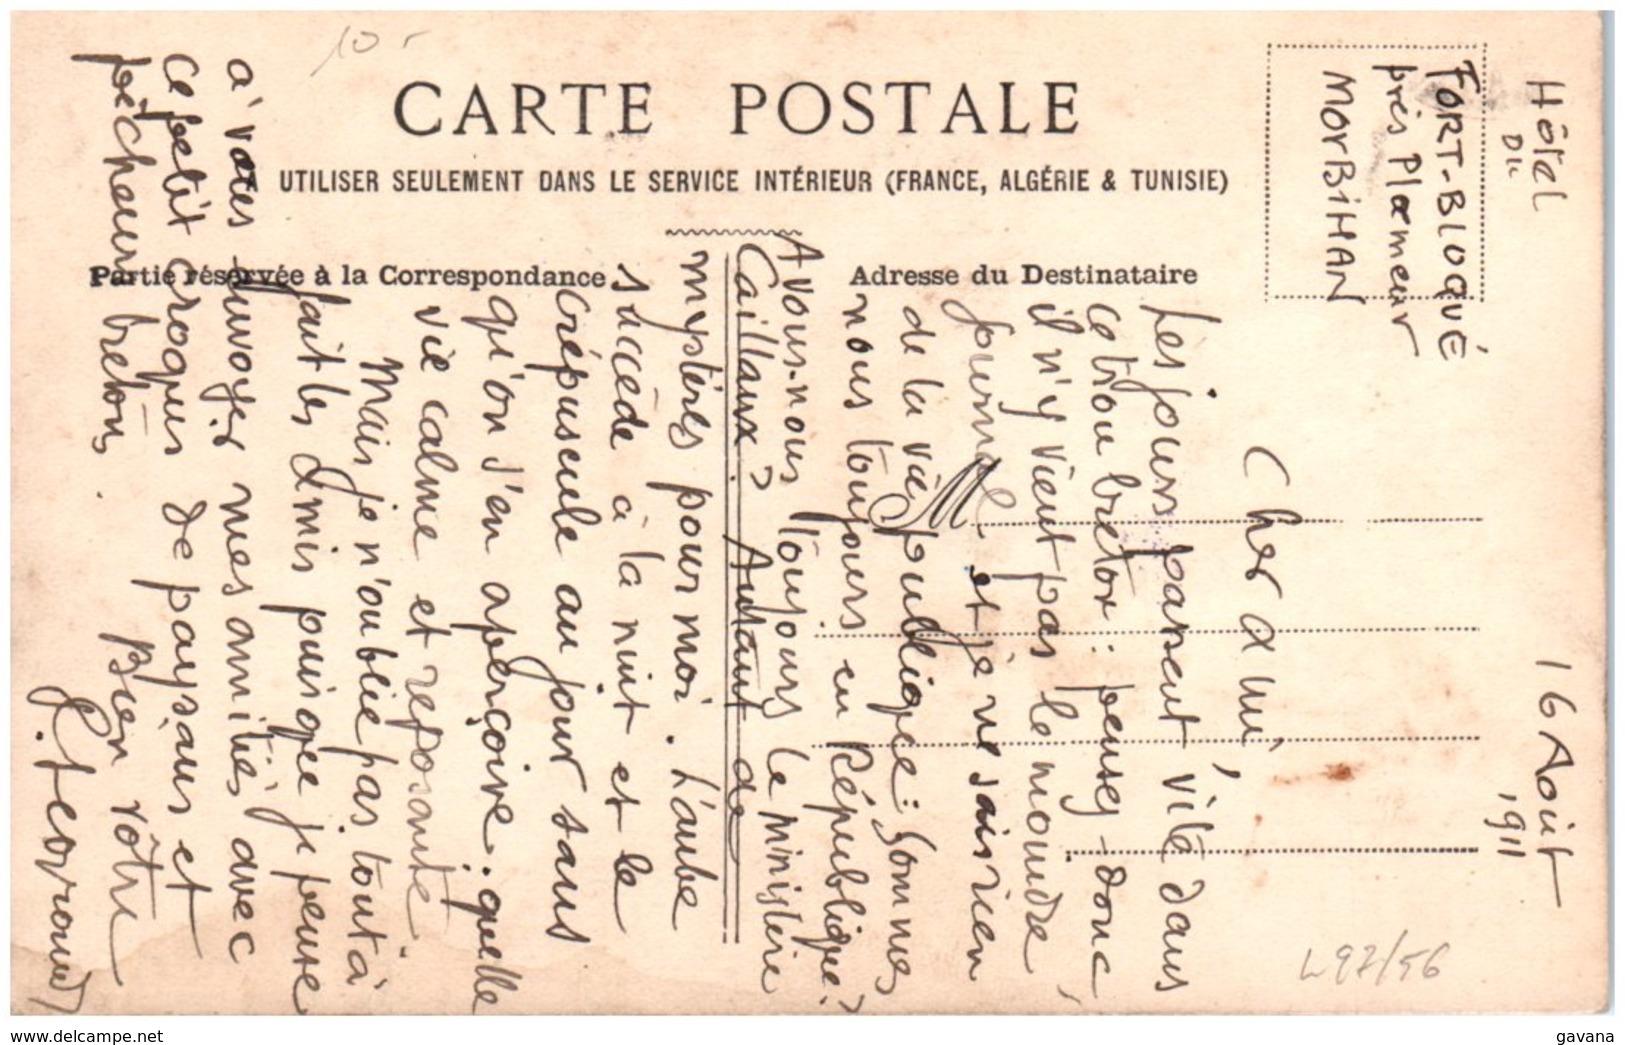 10 -
CARTE POSTALE
A UTILISER SEULEMENT DANS LE SERVICE INTÉRIEUR (FRANCE, ALGÉRIE & TUNISIE)
Partie réservée à la Correspondance
Adresse du Destinataire
M
Hôtel
DU
FORT-BLOQUÉ
près Plœmeur
MorBiHAN
16 Août
1911
Cher ami,
Les jours passent vite dans
ce trou breton : pensez-donc
il n'y vient pas le moindre
journal et je ne sais rien
de la vie publique : sommes
nous toujours en République ?
Avons-nous toujours le ministère
Caillaux ? Autant de
mystères pour moi. L'aube
succède à la nuit et le
crépuscule au jour sans
qu'on s'en aperçoive. quelle
vie calme et reposante
Mais je n'oublie pas tout à
fait les amis puisque je pense
à vous envoyer mes amitiés avec
ce petit croquis de paysans et
pêcheurs bretons.
Bien vôtre
L97/56
gavana
www.delcampe.net